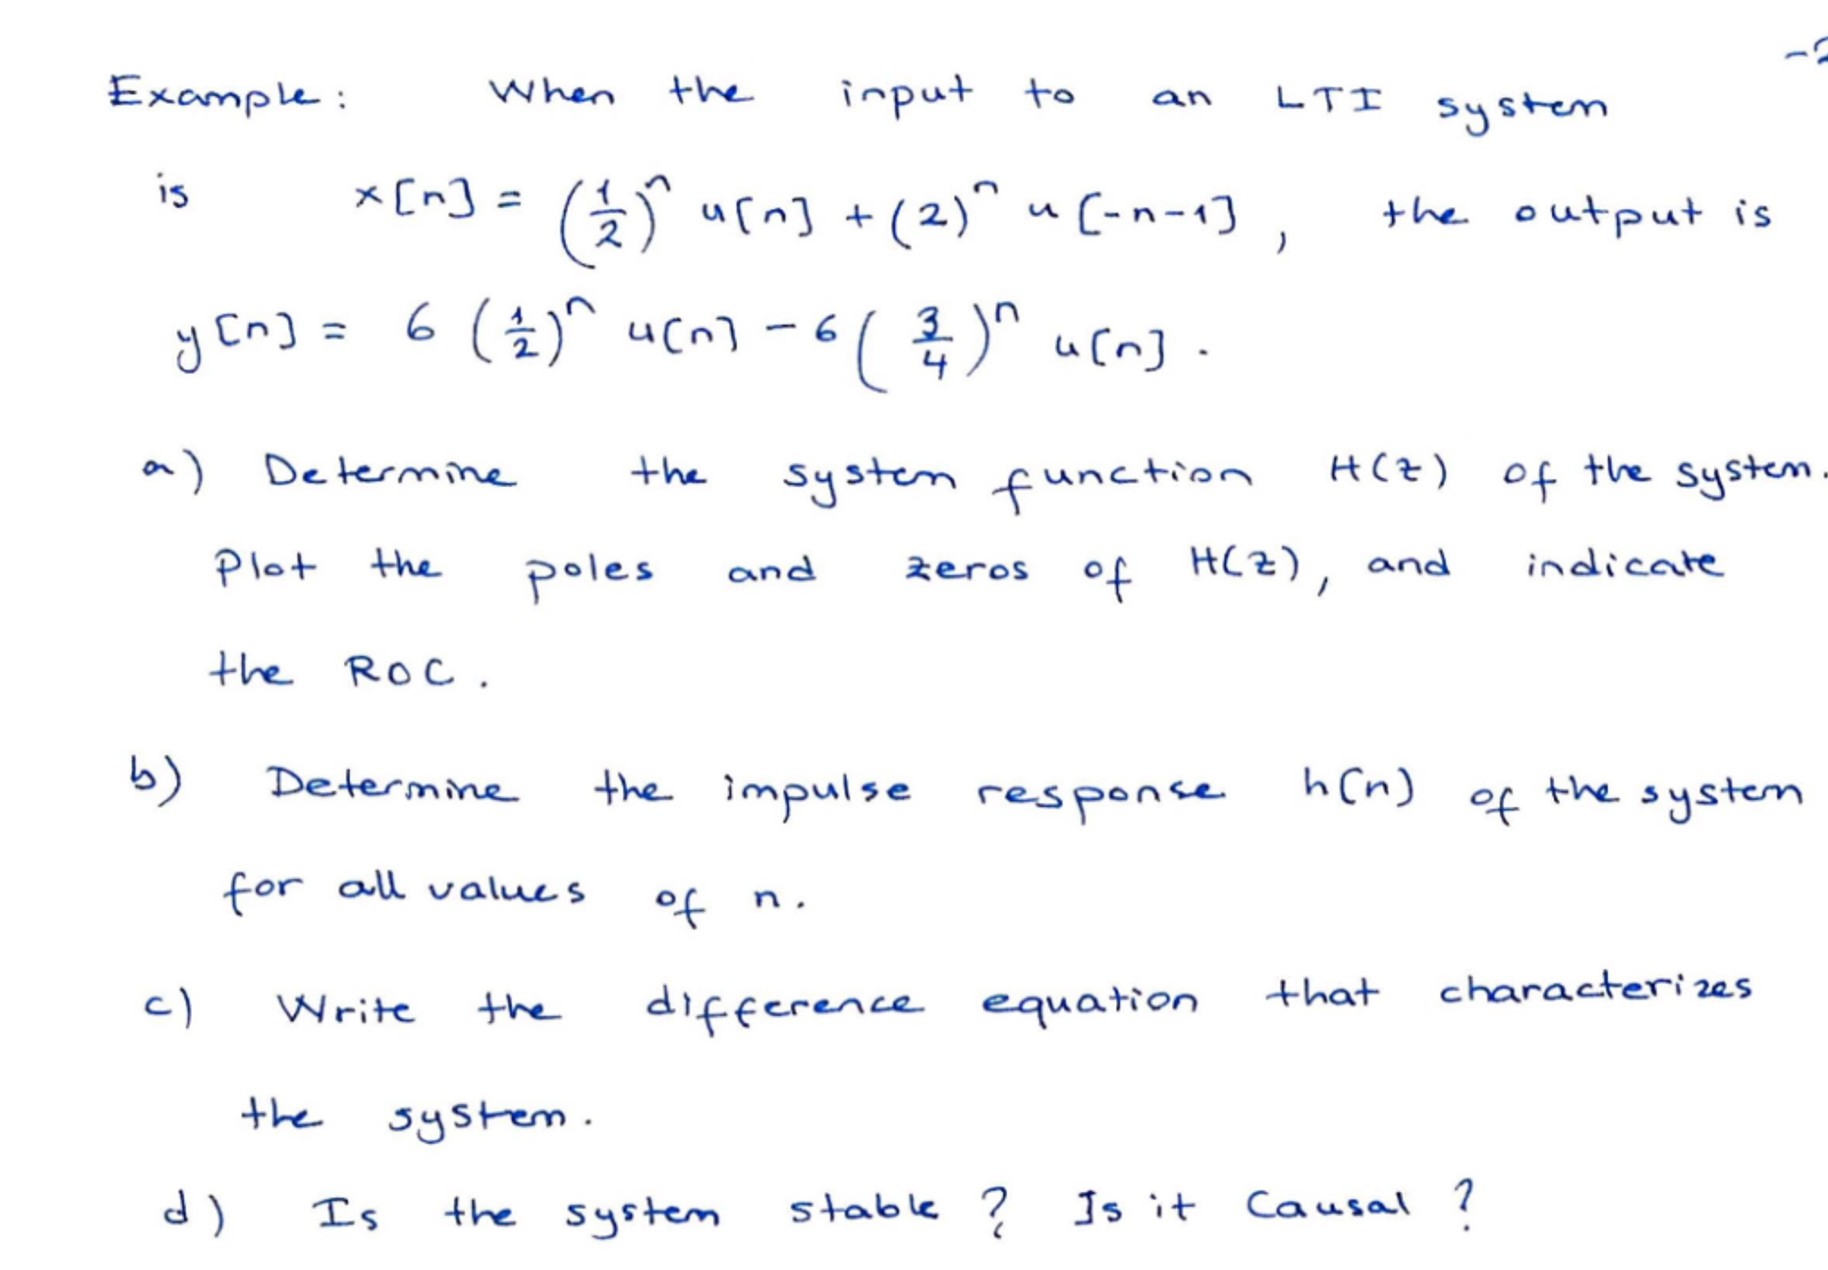 -2
Example: When the input to an LTI system
is x[n] = (1/2)^n u[n] + (2)^n u[-n-1], the output is
y[n] = 6 (1/2)^n u[n] - 6 (3/4)^n u[n].
a) Determine the system function H(z) of the system.
Plot the poles and zeros of H(z), and indicate
the ROC.
b) Determine the impulse response h[n] of the system
for all values of n.
c) Write the difference equation that characterizes
the system.
d) Is the system stable? Is it Causal?